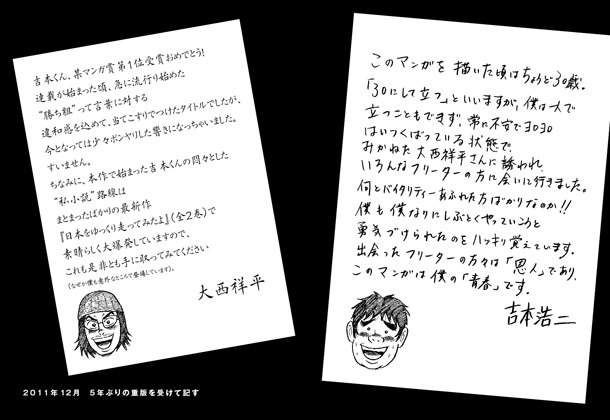 吉本くん、某マンガ賞第1位受賞おめでとう!
連載が始まった頃、急に流行り始めた
“勝ち組”って言葉に対する
違和感を込めて、当てこすりでつけたタイトルでしたが、
今となっては少々ボンヤリした響きになっちゃいました。
すいません。
ちなみに、本作で始まった吉本くんの悶々とした
“私小説”路線は
まとまったばかりの最新作
『日本をゆっくり走ってみたよ』(全2巻)で
素晴らしく大爆発していますので、
これも是非とも手に取ってみてください
(なぜか僕も意外なところで登場しています)。
大西祥平
このマンガを描いた頃はちょうど30歳。
「30にして立つ」といいますが、僕は一人で
立つこともできず、常に不安でヨロヨロ
はいつくばっている状態で、
みかねた大西祥平さんに誘われ、
いろんなフリーターの方に会いに行きました。
何とバイタリティーあふれた方ばかりなのか!!
僕も僕なりにしぶとくやっていこうと
勇気づけられたのをハッキリ覚えています。
出会ったフリーターの方々は「恩人」であり、
このマンガは僕の「青春」です。
吉本浩二
2011年12月 5年ぶりの重版を受けて記す